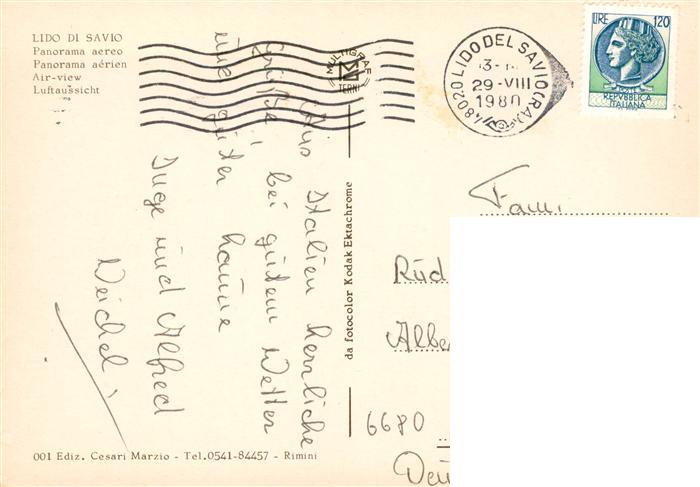 LIDO DI SAVIO
Panorama aereo
Panorama aérien
Air-view
Luftaussicht
MULTIGRAF
TERNI
48020 LIDO DEL SAVIO (RA)
29-VIII
1980
LIRE 120
REPVBBLICA
ITALIANA
Aus Italien herrliche
Grüße, bei gutem Wetter
und guter Laune
Inge und Alfred
Weichel,
da fotocolor Kodak Ektachrome
Fam.
Rüd
Albe
6680
Deu
001 Ediz. Cesari Marzio - Tel.0541-84457 - Rimini